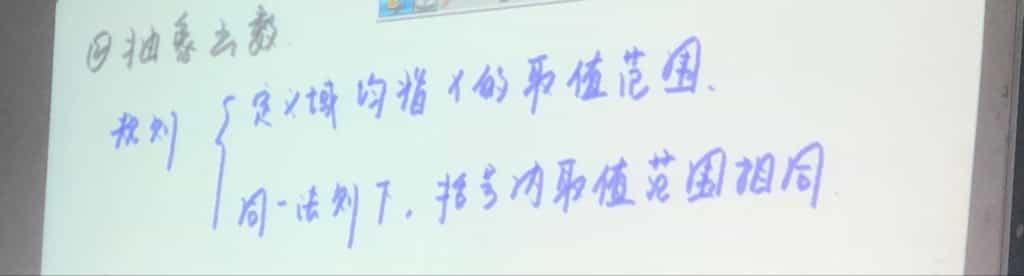 ④抽象函数
规则
定义域均指x的取值范围.
同一法则下,括号内取值范围相同